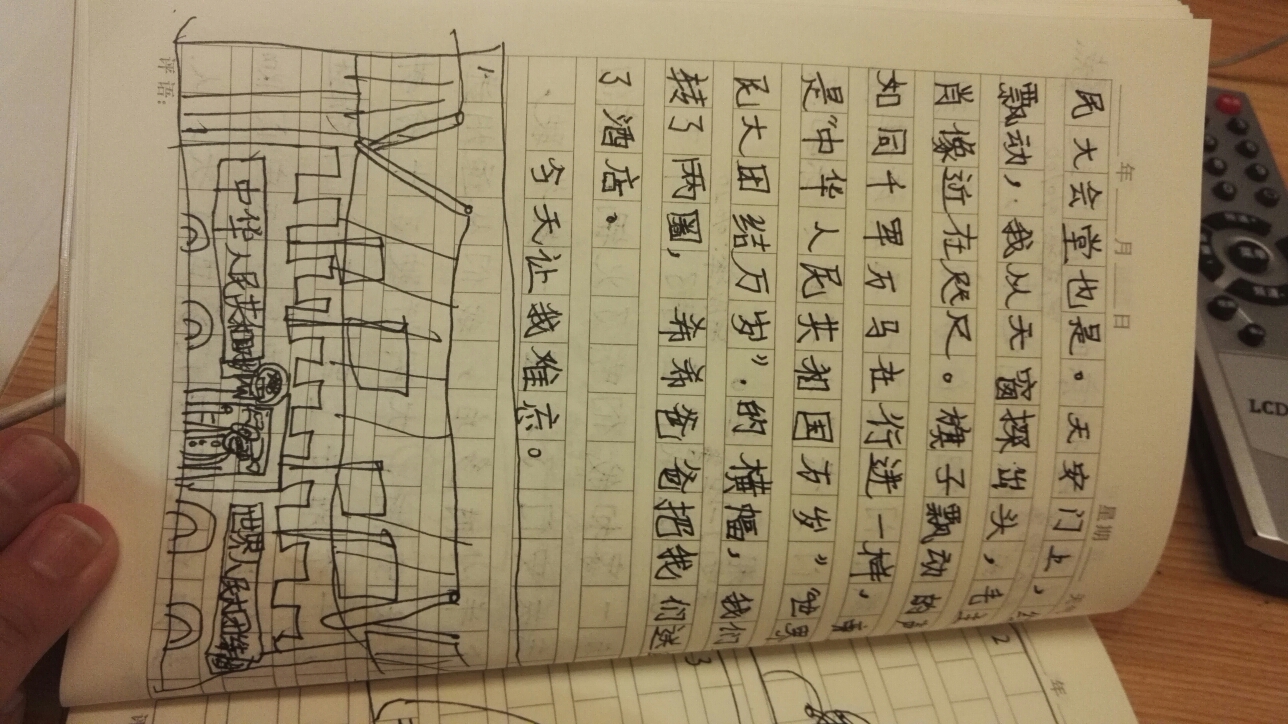 年 月 日 星期
民大会堂也是。天安门上，
飘动，我从天窗探出头，毛
肖像近在咫尺。旗子飘动的
如同千军万马在行进一样，
是“中华人民共和国万岁”“世界
民大团结万岁”.的横幅，我们
转了两圈，希希爸爸把我们送
了酒店。
今天让我难忘。
中华人民共和国
世界人民大团结
评语：
LCD
2
3
年